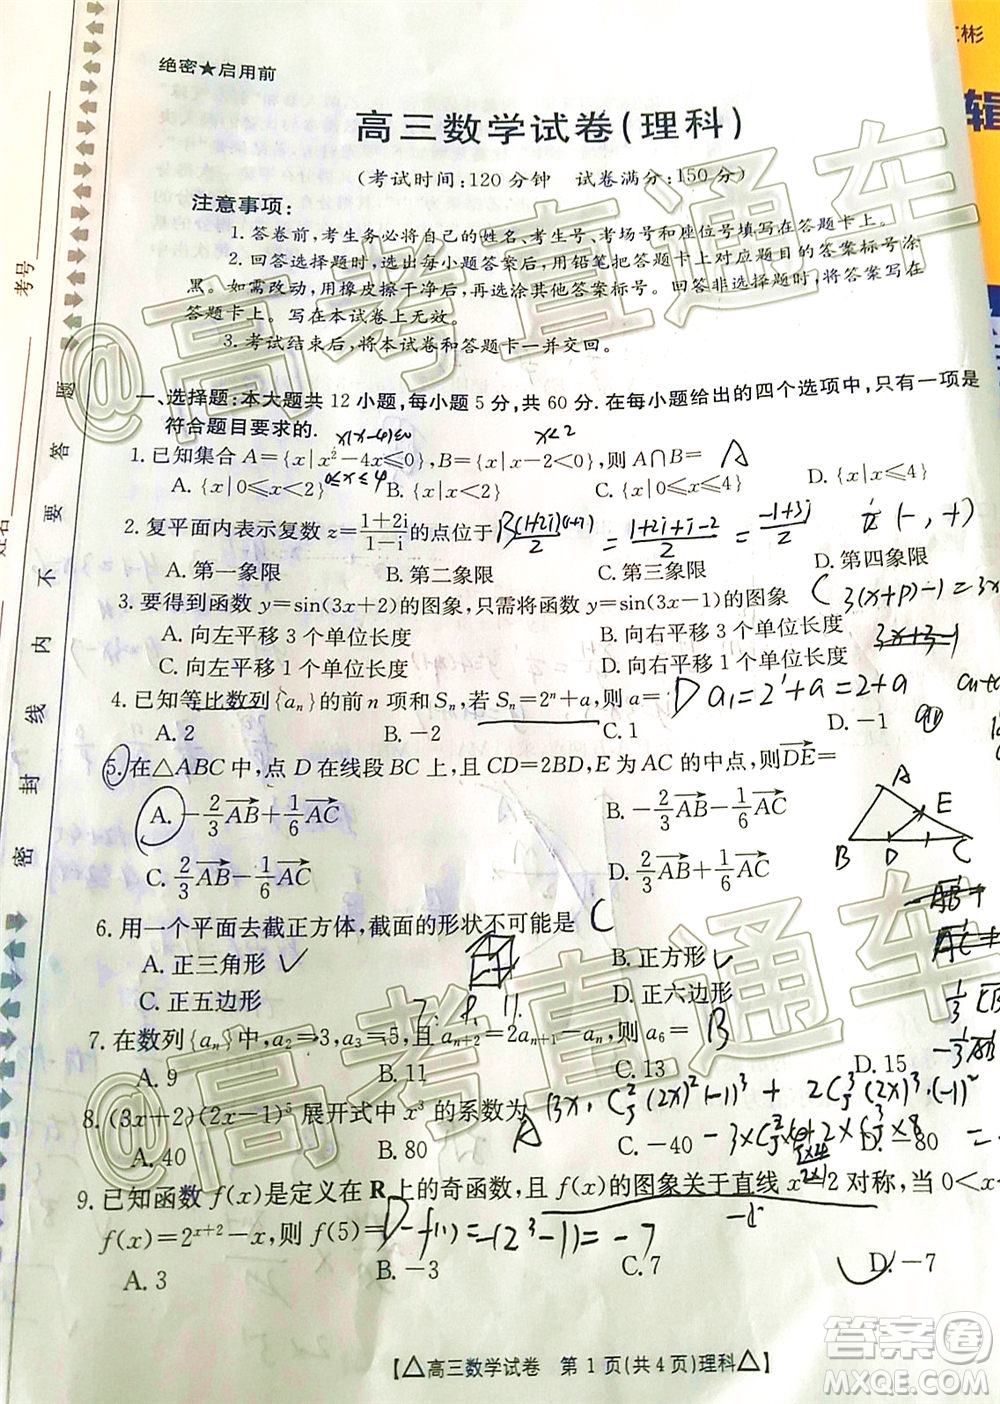 绝密★启用前
高三数学试卷(理科)
(考试时间:120分钟 试卷满分:150分)
注意事项:
1.答卷前,考生务必将自己的姓名、考生号、考场号和座位号填写在答题卡上。
2.回答选择题时,选出每小题答案后,用铅笔把答题卡上对应题目的答案标号涂
黑。如需改动,用橡皮擦干净后,再选涂其他答案标号。回答非选择题时,将答案写在
答题卡上。写在本试卷上无效。
3.考试结束后,将本试卷和答题卡一并交回。
一、选择题:本大题共12小题,每小题5分,共60分.在每小题给出的四个选项中,只有一项是
符合题目要求的.
x(x-4)≤0 x<2
1.已知集合A={x|x²-4x≤0},B={x|x-2<0},则A∩B= A
0≤x≤4
A.{x|0≤x<2} B.{x|x<2} C.{x|0≤x≤2} D.{x|x≤4}
2.复平面内表示复数z=(1+2i)/(1-i)的点位于 B (1+2i)(1+i)/2 = (1+2i+i-2)/2 = (-1+3i)/2 (-,+)
A.第一象限 B.第二象限 C.第三象限 D.第四象限
3.要得到函数y=sin(3x+2)的图象,只需将函数y=sin(3x-1)的图象 C 3(x+φ)-1=3x
A.向左平移3个单位长度 B.向右平移3个单位长度 3x+3-1
C.向左平移1个单位长度 D.向右平移1个单位长度
4.已知等比数列{aₙ}的前n项和Sₙ,若Sₙ=2ⁿ+a,则a= D a₁=2¹+a=2+a
A.2 B.-2 C.1 D.-1
5.在△ABC中,点D在线段BC上,且CD=2BD,E为AC的中点,则DE=
A.-2/3AB+1/6AC B.-2/3AB-1/6AC
A E B D C
C.2/3AB-1/6AC D.2/3AB+1/6AC
6.用一个平面去截正方体,截面的形状不可能是 C
A.正三角形 B.正方形
C.正五边形 D.正六边形
7. 8. 11.
7.在数列{aₙ}中,a₂=3,a₃=5,且aₙ₊₂=2aₙ₊₁-aₙ,则a₆= B
A.9 B.11 C.13 D.15
8.(3x+2)(2x-1)⁵展开式中x³的系数为
A
A.40 B.80 C.-40 D.-80
9.已知函数f(x)是定义在R上的奇函数,且f(x)的图象关于直线x=2对称,当0<x
f(x)=2ˣ⁺²-x,则f(5)= D -f(1)=-(2³-1)=-7
A.3 B.-3 C.7 D.-7
【△高三数学试卷 第1页(共4页)理科△】
考号
姓名
密封线内不要答题
@高考直通车
@高考直通车
答案圈
MXQE.COM
彬
辑